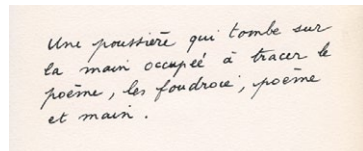 Une poussière qui tombe sur
la main occupée à tracer le
poème, les foudroie, poème
et main.